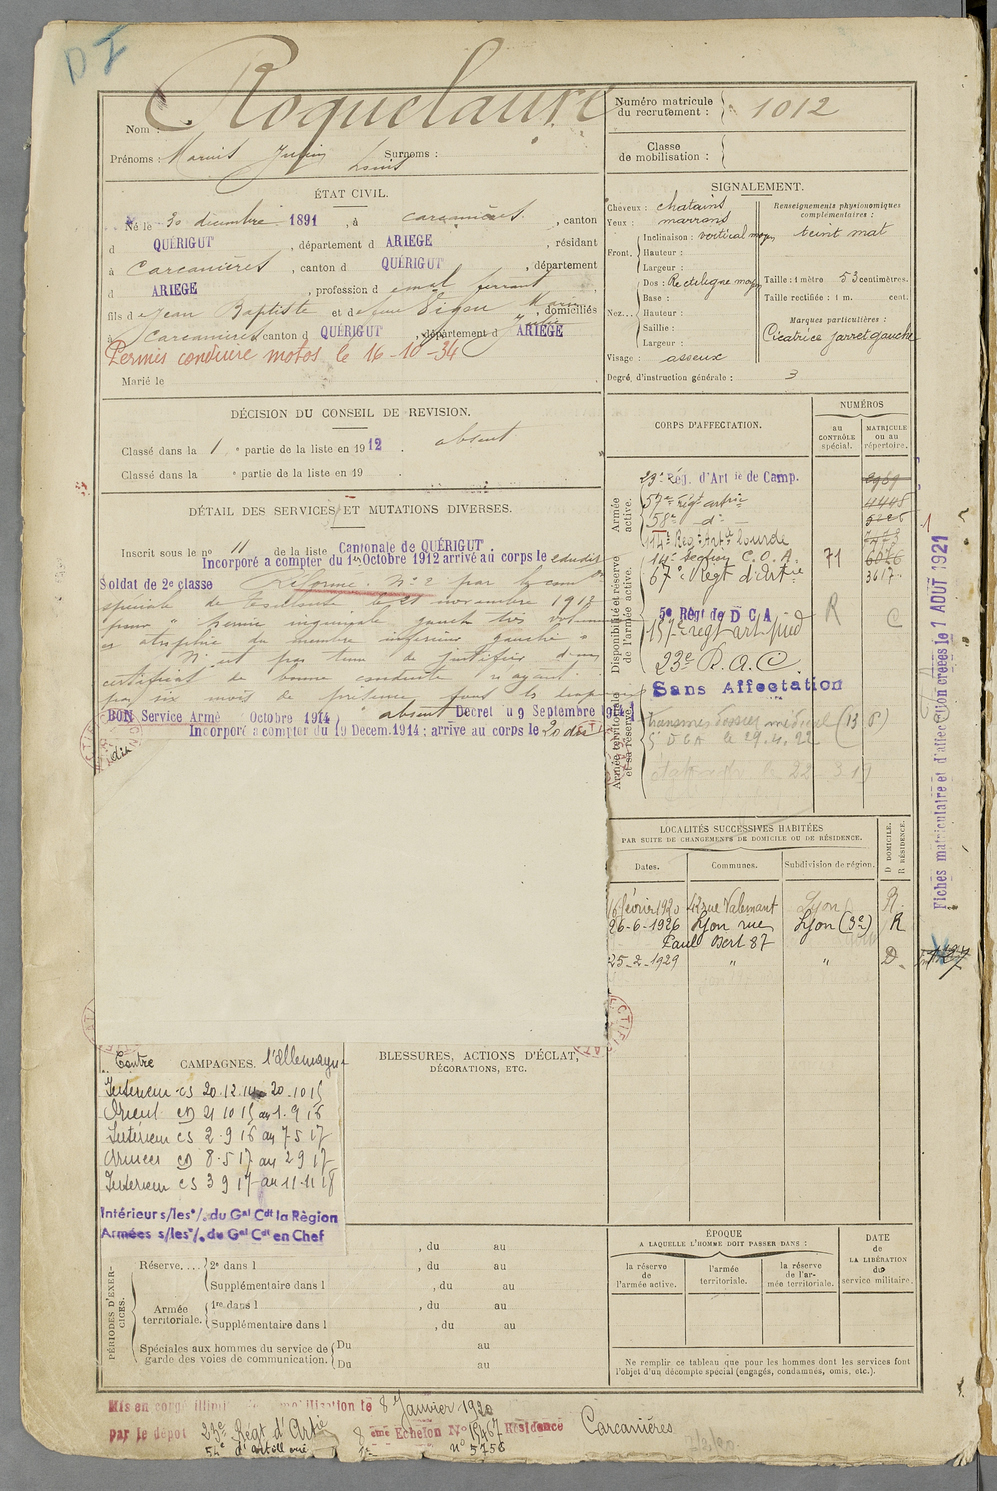 D I
Nom : Roquelaure
Prénoms : Justin Louis Surnoms :
Numéro matricule du recrutement : 1012
Classe de mobilisation :
ÉTAT CIVIL.
Né le 30 décembre 1891, à Carcanières, canton
d QUÉRIGUT, département d ARIEGE, résidant
à Carcanières, canton d QUÉRIGUT, département
d ARIEGE, profession d ferrant
fils de Jean Baptiste et de feue Marie, domiciliés
à Carcanières canton d QUÉRIGUT, département d ARIEGE
Permis conduire motos le 16-10-34
Marié le
SIGNALEMENT.
Cheveux : chatains
Yeux : marrons
Front. Inclinaison : vertical moyen
Hauteur :
Largeur :
Nez... Dos : Rectiligne moy
Base :
Hauteur :
Saillie :
Largeur :
Visage : osseux
Degré d'instruction générale : 3
Renseignements physionomiques complémentaires :
teint mat
Taille : 1 mètre 53 centimètres.
Taille rectifiée : 1 m. cent.
Marques particulières :
Cicatrice jarret gauche
DÉCISION DU CONSEIL DE REVISION.
Classé dans la 1 e partie de la liste en 1912. absent
Classé dans la e partie de la liste en 19 .
DÉTAIL DES SERVICES ET MUTATIONS DIVERSES.
Inscrit sous le n° 11 de la liste Cantonale de QUÉRIGUT.
Incorporé a compter du 1er Octobre 1912 arrivé au corps le edudit
Soldat de 2e classe Réforme N° 2 par la com on
spéciale de Toulouse le 21 novembre 1913
pour " hernie inguinale gauche très
et atrophie du membre inférieur gauche "
N'est pas tenu de justifier d'un
certificat de bonne conduite n'ayant
pas six mois de présence sous les drapeaux
BON Service Armé Octobre 1914 absent Decret du 9 Septembre 1914
Incorporé a compter du 19 Decem. 1914 ; arrive au corps le 20 du
dit
CORPS D'AFFECTATION.
NUMÉROS
au CONTRÔLE spécial.
MATRICULE ou au répertoire.
Armée active.
Disponibilité et réserve de l'armée active.
Armée territoriale et sa réserve.
23e Rég. d'Art ie de Camp.
57e regt artie 4448
58e d°
114e Reg. Art. lourde
14e Section C.O.A. 71
67e Régt d'Artie 3617
5e Régt de D C A R C
187e regt art pied
23e R.A.C.
Sans Affectation
transmis dossier médical (13 6)
5e D.C.A. le 29.4.22
le 22 3 19
Fiches matriculaire et d'affectation créées le 1 AOUT 1921
LOCALITÉS SUCCESSIVES HABITÉES
PAR SUITE DE CHANGEMENTS DE DOMICILE OU DE RÉSIDENCE.
Dates. Communes. Subdivision de région. D DOMICILE. R RÉSIDENCE.
16 février 1920 Lyon R.
26-6-1926 Lyon rue Lyon (3e) R
Paul Bert 87
25-2-1929 " " D.
CAMPAGNES.
Contre l'Allemagne
Intérieur cs 20.12.14 au 20.10.15
Orient cd 21 10 15 au 1.9 16
Intérieur cs 2.9 16 au 7 5 17
Armées cd 8.5 17 au 2 9 17
Intérieur cs 3 9 17 au 11-11 18
Intérieur s/les °/. du Gal Cdt la Règion
Armées s/les °/. du Gal Cdt en Chef
BLESSURES, ACTIONS D'ÉCLAT, DÉCORATIONS, ETC.
PÉRIODES D'EXERCICES.
, du au
Réserve.... 2e dans l , du au
Supplémentaire dans l , du au
Armée territoriale. 1re dans l , du au
Supplémentaire dans l , du au
Spéciales aux hommes du service de garde des voies de communication. Du au
Du au
ÉPOQUE
A LAQUELLE L'HOMME DOIT PASSER DANS :
la réserve de l'armée active.
l'armée territoriale.
la réserve de l'armée territoriale.
DATE de LA LIBÉRATION du service militaire.
Ne remplir ce tableau que pour les hommes dont les services font l'objet d'un décompte spécial (engagés, condamnés, omis, etc.).
Mis en congé illimi mobilisation le 8 Janvier 1920
par le dépot 23e Régt d'Artie 8 eme Echelon N° 15467 Résidence Carcanières
54e d'artillerie n° 5756